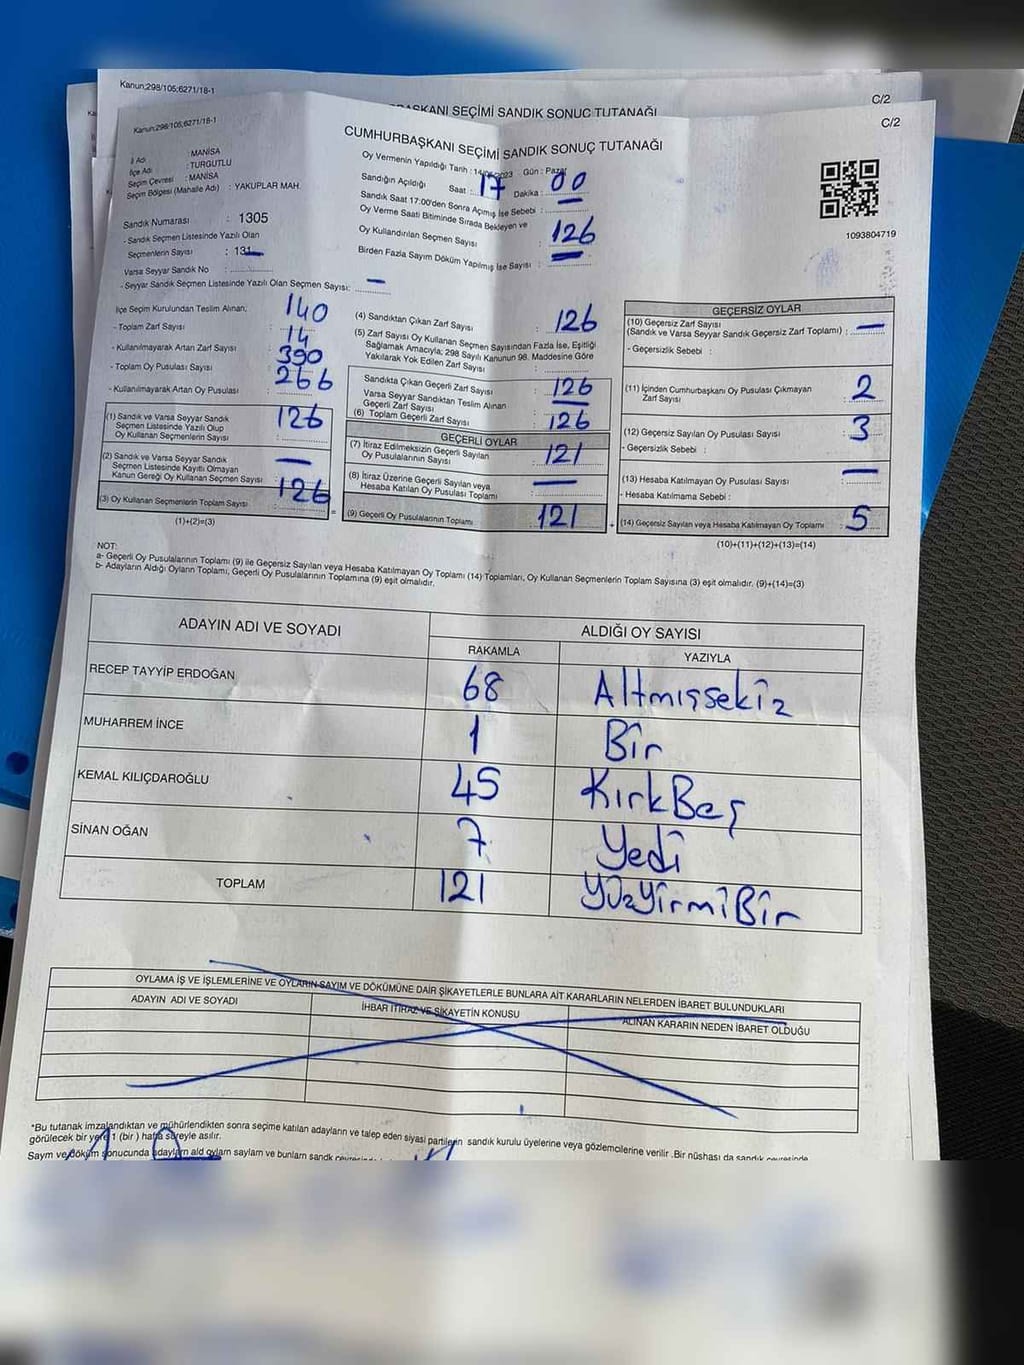 Kanun;298/105;6271/18-1
BAŞKANI SEÇİMİ SANDIK SONUÇ TUTANAĞI
C/2
Kanun;298/105;6271/18-1
C/2
CUMHURBAŞKANI SEÇİMİ SANDIK SONUÇ TUTANAĞI
İl Adı : MANİSA
İlçe Adı : TURGUTLU
Seçim Çevresi : MANİSA
Seçim Bölgesi (Mahalle Adı) : YAKUPLAR MAH.
Sandık Numarası : 1305
- Sandık Seçmen Listesinde Yazılı Olan
Seçmenlerin Sayısı : 131
Varsa Seyyar Sandık No :
- Seyyar Sandık Seçmen Listesinde Yazılı Olan Seçmen Sayısı: —
Oy Vermenin Yapıldığı Tarih : 14/05/2023 Gün : Pazar
Sandığın Açıldığı Saat : 17 Dakika : 00
Sandık Saat 17:00'den Sonra Açılmış İse Sebebi :
Oy Verme Saati Bitiminde Sırada Bekleyen ve
Oy Kullandırılan Seçmen Sayısı : 126
Birden Fazla Sayım Döküm Yapılmış İse Sayısı : —
1093804719
İlçe Seçim Kurulundan Teslim Alınan;
- Toplam Zarf Sayısı : 140
- Kullanılmayarak Artan Zarf Sayısı : 14
- Toplam Oy Pusulası Sayısı : 390
- Kullanılmayarak Artan Oy Pusulası : 266
(1) Sandık ve Varsa Seyyar Sandık
Seçmen Listesinde Yazılı Olup
Oy Kullanan Seçmenlerin Sayısı : 126
(2) Sandık ve Varsa Seyyar Sandık
Seçmen Listesinde Kayıtlı Olmayan
Kanun Gereği Oy Kullanan Seçmen Sayısı : —
(3) Oy Kullanan Seçmenlerin Toplam Sayısı : 126
(1)+(2)=(3)
(4) Sandıktan Çıkan Zarf Sayısı : 126
(5) Zarf Sayısı Oy Kullanan Seçmen Sayısından Fazla İse, Eşitliği
Sağlamak Amacıyla; 298 Sayılı Kanunun 98. Maddesine Göre
Yakılarak Yok Edilen Zarf Sayısı :
Sandıkta Çıkan Geçerli Zarf Sayısı : 126
Varsa Seyyar Sandıktan Teslim Alınan
Geçerli Zarf Sayısı : —
(6) Toplam Geçerli Zarf Sayısı : 126
GEÇERLİ OYLAR
(7) İtiraz Edilmeksizin Geçerli Sayılan
Oy Pusulalarının Sayısı : 121
(8) İtiraz Üzerine Geçerli Sayılan veya
Hesaba Katılan Oy Pusulası Toplamı : —
(9) Geçerli Oy Pusulalarının Toplamı : 121
GEÇERSİZ OYLAR
(10) Geçersiz Zarf Sayısı
(Sandık ve Varsa Seyyar Sandık Geçersiz Zarf Toplamı) : —
- Geçersizlik Sebebi :
(11) İçinden Cumhurbaşkanı Oy Pusulası Çıkmayan
Zarf Sayısı : 2
(12) Geçersiz Sayılan Oy Pusulası Sayısı : 3
- Geçersizlik Sebebi :
(13) Hesaba Katılmayan Oy Pusulası Sayısı : —
- Hesaba Katılmama Sebebi :
(14) Geçersiz Sayılan veya Hesaba Katılmayan Oy Toplamı : 5
(10)+(11)+(12)+(13)=(14)
NOT:
a- Geçerli Oy Pusulalarının Toplamı (9) ile Geçersiz Sayılan veya Hesaba Katılmayan Oy Toplamı (14) Toplamları, Oy Kullanan Seçmenlerin Toplam Sayısına (3) eşit olmalıdır. (9)+(14)=(3)
b- Adayların Aldığı Oyların Toplamı, Geçerli Oy Pusulalarının Toplamına (9) eşit olmalıdır.
ADAYIN ADI VE SOYADI ALDIĞI OY SAYISI
RAKAMLA YAZIYLA
RECEP TAYYİP ERDOĞAN 68 Altmışsekiz
MUHARREM İNCE 1 Bir
KEMAL KILIÇDAROĞLU 45 KırkBeş
SİNAN OĞAN 7 Yedi
TOPLAM 121 YüzYirmiBir
OYLAMA İŞ VE İŞLEMLERİNE VE OYLARIN SAYIM VE DÖKÜMÜNE DAİR ŞİKAYETLERLE BUNLARA AİT KARARLARIN NELERDEN İBARET BULUNDUKLARI
ADAYIN ADI VE SOYADI İHBAR İTİRAZ VE ŞİKAYETİN KONUSU ALINAN KARARIN NEDEN İBARET OLDUĞU
*Bu tutanak imzalandıktan ve mühürlendikten sonra seçime katılan adayların ve talep eden siyasi partilerin sandık kurulu üyelerine veya gözlemcilerine verilir .Bir nüshası da sandık çevresinde
görülecek bir yere 1 (bir ) hafta süreyle asılır.